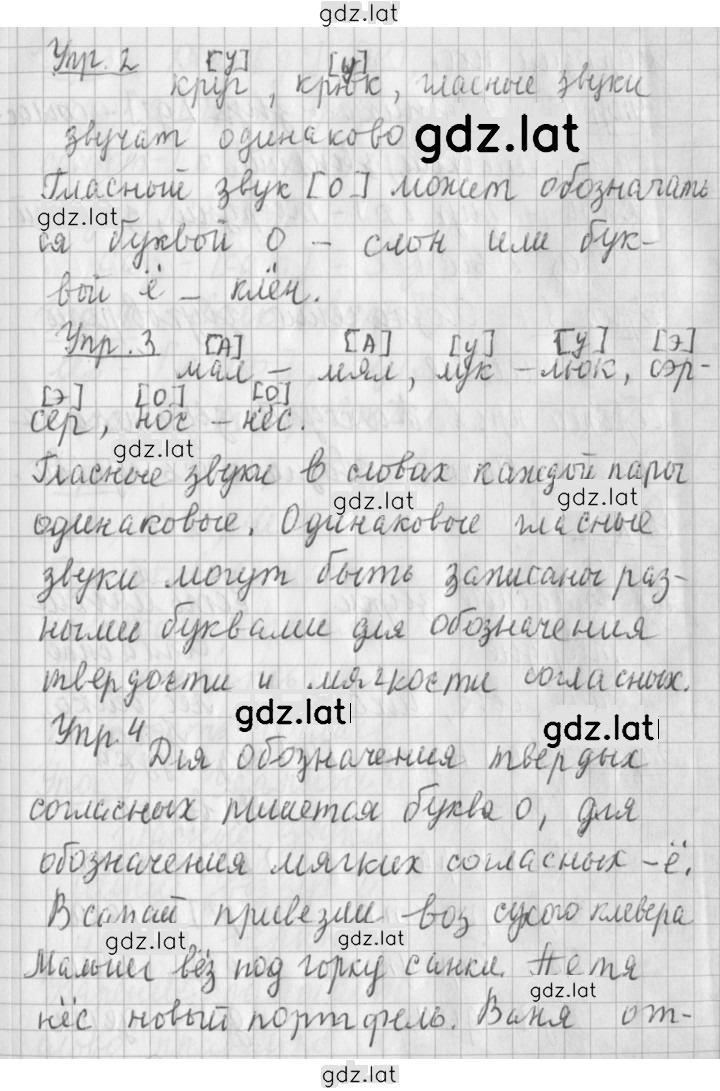 gdz.lat
Упр. 2 [У] [у]
круг, крюк, гласные звуки
звучат одинаково
gdz.lat
Гласный звук [О] может обозначать
gdz.lat
ся буквой О – слон или бук-
вой ё – клён.
Упр. 3 [А] [А] [у] [У] [Э]
мал – мял, лук – люк, сэр-
[Э] [О] [О]
сер, нос – нёс.
gdz.lat
Гласные звуки в словах каждой пары
gdz.lat gdz.lat
одинаковые. Одинаковые гласные
звуки могут быть записаны раз-
ными буквами для обозначения
твердости и мягкости согласных.
gdz.lat gdz.lat
Упр. 4
Для обозначения твердых
согласных пишется буква О, для
обозначения мягких согласных – ё.
В сарай привезли воз сухого клевера
gdz.lat gdz.lat
Малыш вёз под горку санки. Петя
gdz.lat
нёс новый портфель. Ваня от-
gdz.lat